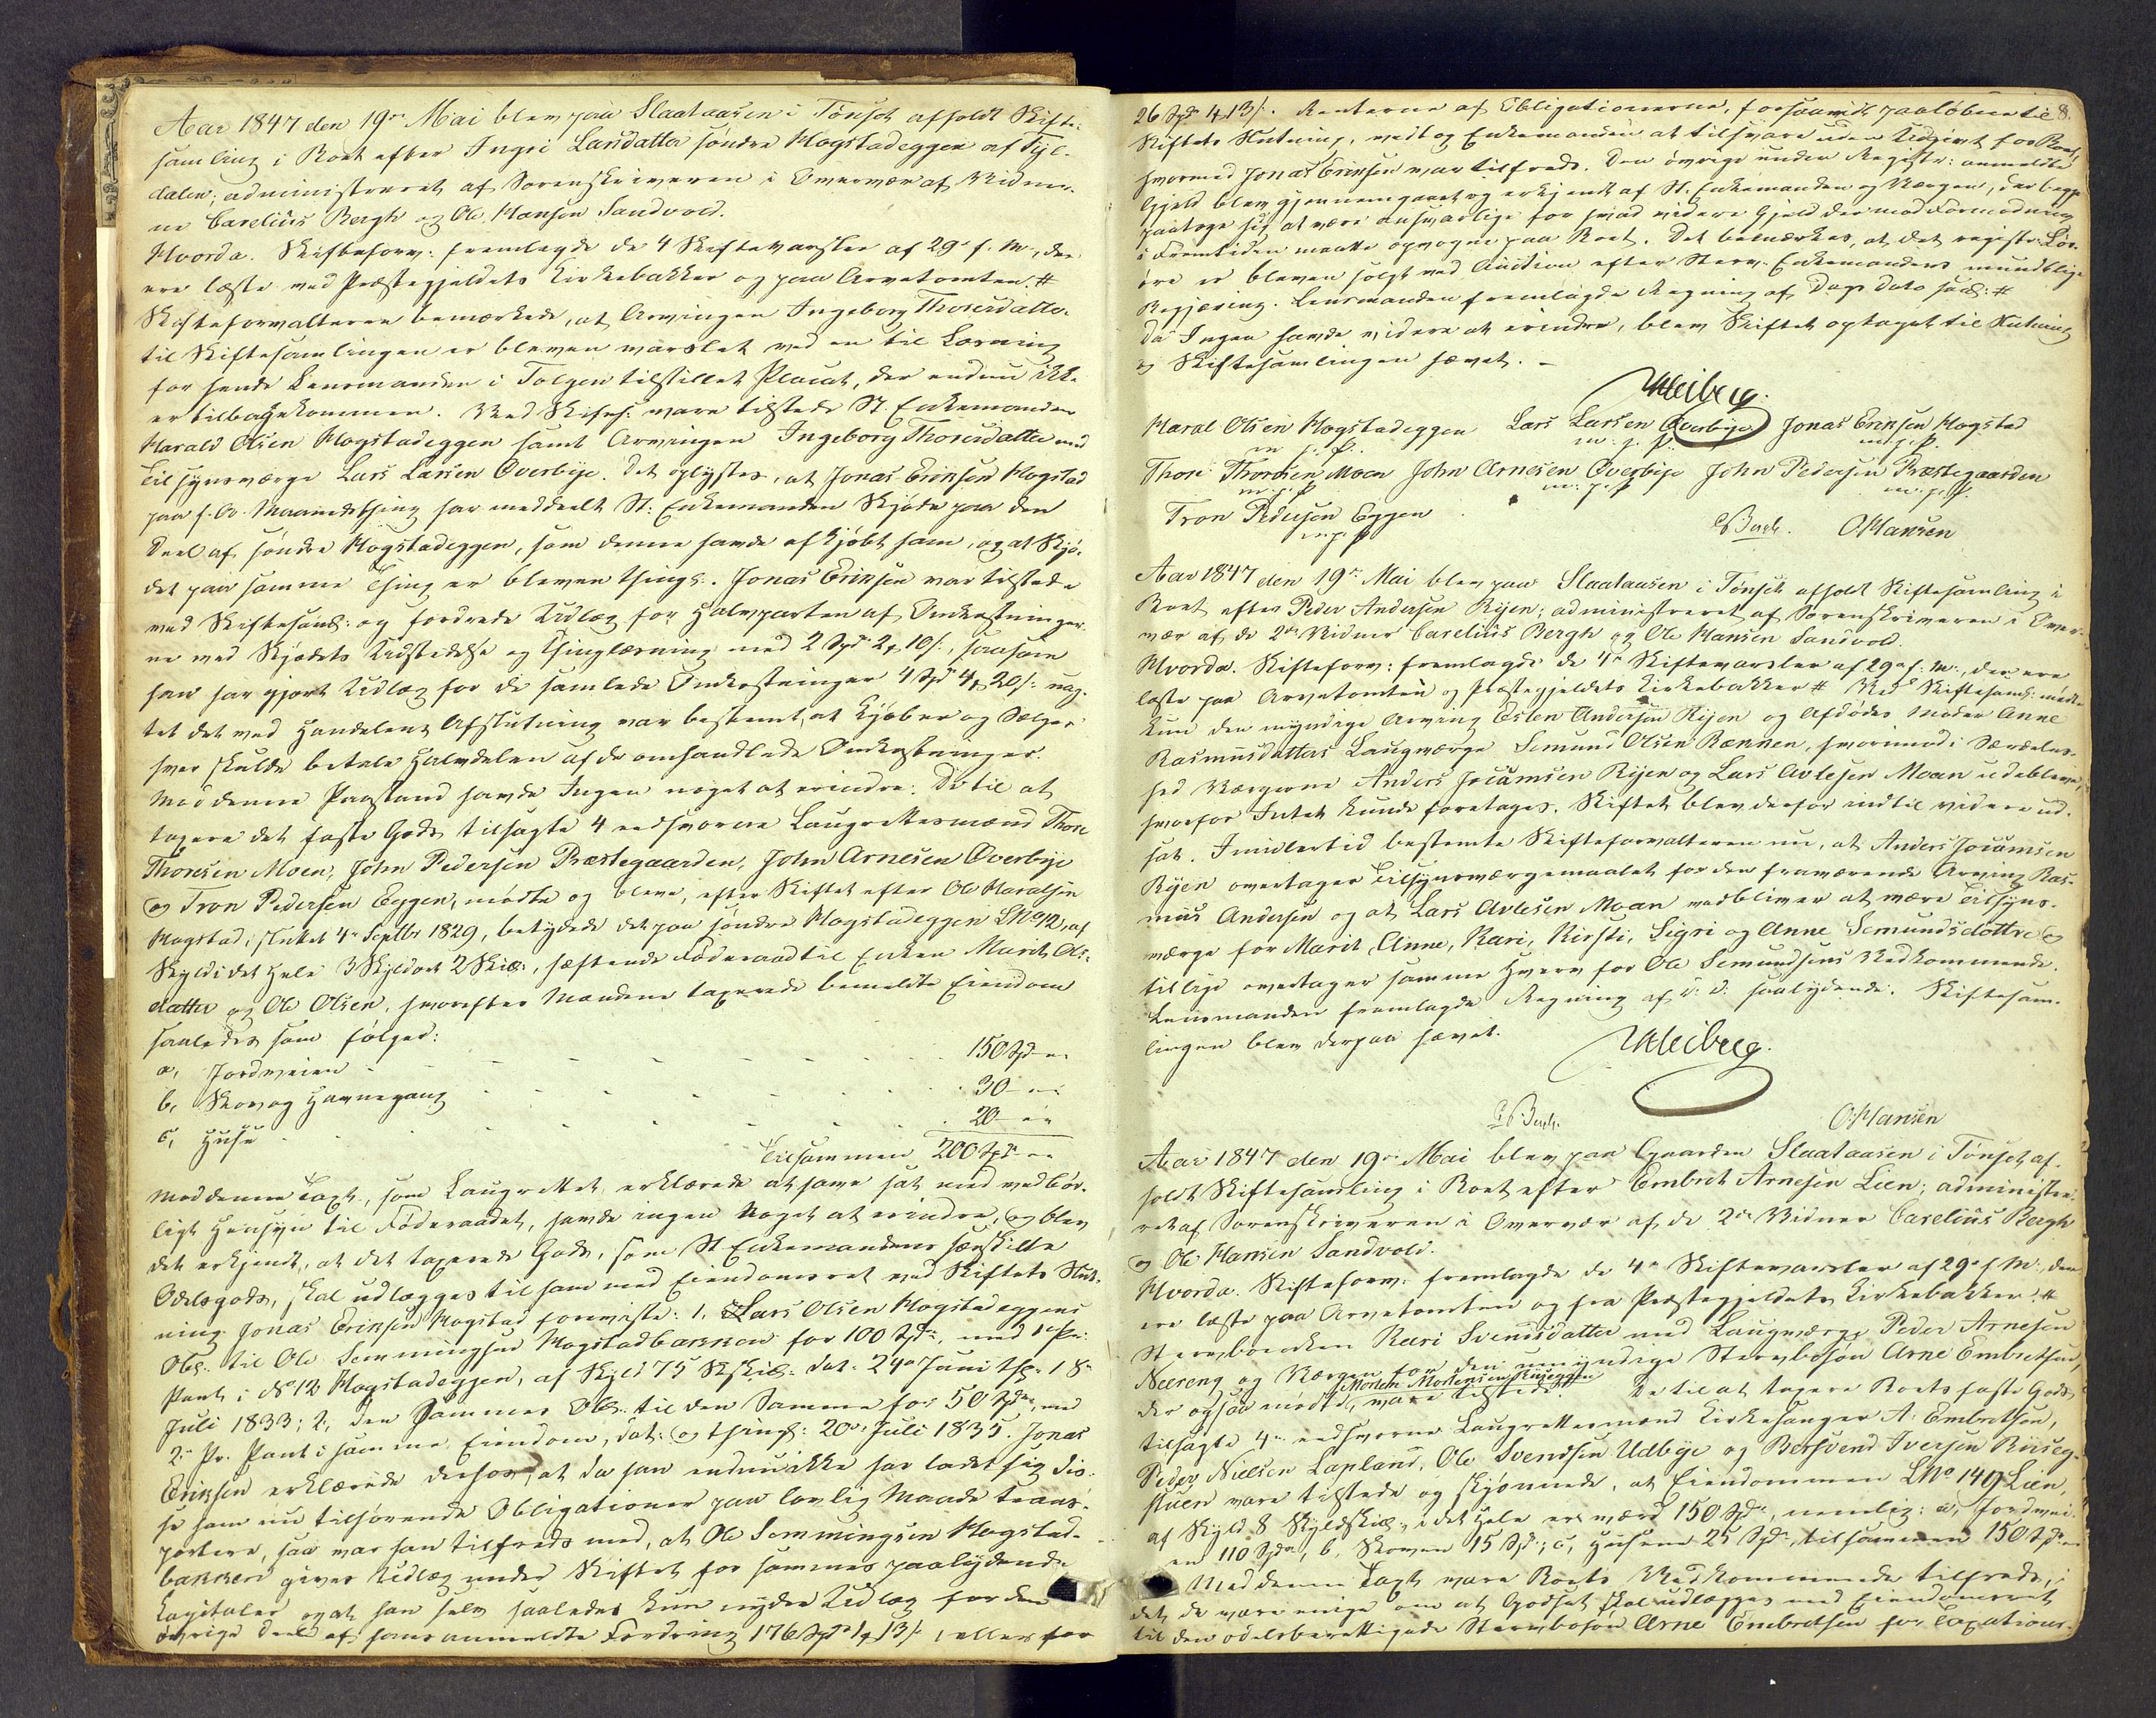 Aar 1847 den 19de Mai blev paa Slaataasen i Tønset afholdt Skifte-
samling i Boet efter Ingri Larsdatter søndre Kogstadeggen af Tyl-
dalen; administreret af Sorenskriveren i Overvær af Vidner-
ne Carelius Bergh og Ole Hansen Sandvold.
Hvorda. Skifteforv: fremlagde de 4 Skiftevarsler af 29de f. M., der
ere læste ved Præstegjeldets Kirkebakker og paa Arvetomten. #
Skifteforvalteren bemærkede, at Arvingen Ingeborg Thoresdatter
til Skiftesamlingen er bleven varslet ved en til Læsning
for hende Lensmanden i Tolgen tilstillet Placat, der endnu ikke
er tilbagekommen. Ved Skiftes: vare tilstede St: Enkemanden
Harald Olsen Kogstadeggen samt Arvingen Ingeborg Thoresdatter med
Tilsynsværge Lars Larsen Øverbye. Det oplystes, at Jonas Eriksen Kogstad
paa f. A. Maanedsthing har meddeelt St: Enkemanden Skjøde paa den
Deel af søndre Kogstadeggen, som denne havde afkjøbt ham, og at Skjø-
det paa samme Thing er bleven thingl:. Jonas Eriksen var tilstede
ved Skiftesaml: og fordrede Udlæg for Halvparten af Omkostninger-
ne ved Skjødets Udstedelse og Thinglæsning med 2 Spd 2 # 10 s:, saasom
han har gjort Udlæg for de samlede Omkostninger 4 Spd 4 # 20 s: uag-
tet det ved Handelens Afslutning var bestemt, at Kjøber og Sælger
hver skulde betale Halvdelen af de omhandlede Omkostninger.
Mod denne Paastand havde Ingen noget at erindre. De til at
taxere det faste Gods tilsagte 4 eedsvorne Laugrettesmænd Thore
Thoresen Moen, John Pedersen Præstegaarden, John Arnesen Øverbye
og Tron Pedersen Eggen, mødte og bleve, efter Skiftet efter Ole Haralsen
Kogstad, sluttet 4de Septbr 1829, betydede det paa søndre Kogstadeggen LNo 12, af
Skyld i det Hele 3 Skyldort 2 Skil:, hæftende Føderaad til Enken Marit Ols-
datter og Ole Olsen, hvorefter Mændene taxerede bemeldte Eiendom
saaledes som følger:
a, Jordveien - - - - - 150 Spd
b, Skov og Havnegang - - - - 30
c, Huse - - - - - 20
Tilsammen 200 Spd
Mod denne Taxt, som Laugrettet erklærede at have sat med vedbør-
ligt Hensyn til Føderaadet, havde ingen Noget at erindre, og blev
det erkjendt, at det taxerede Gods, som St Enkemandens særskilte
Odelsgods, skal udlægges til ham med Eiendomsret ved Skiftets Slut-
ning. Jonas Eriksen Kogstad foreviste: 1, Lars Olsen Kogstadeggens
Obl: til Ole Semmingsen Kogstadbakken for 100 Spd:, med 1ste Pr:
Pant i No 12 Kogstadeggen, af Skyld 75 Skil: dat: 24de Juni thl: 18de
Juli 1833; 2, den Sammes Obl: til den Samme for 50 Spd:, med
2den Pr. Pant i samme Eiendom, dat: og thingl: 20de Juli 1835. Jonas
Eriksen erklærede derhos, at da han endnu ikke har ladet sig dis-
se ham nu tilhørende Obligationer paa lovlig Maade trans-
portere, saa var han tilfreds med, at Ole Semmingsen Kogstad-
bakken gives Udlæg under Skiftet for sammes paalydende
Capitaler og at han selv saaledes kun nyder Udlæg for den
øvrige Deel af hans anmeldte Fordring 176 Spd 1 # 13 s:, eller for
8.
26 Spd 4 # 13 s:. Renterne af Obligationerne, forsaavidt paaløbne til
Skiftets Slutning, vedtog Enkemanden at tilsvare uden Udgivt for Boet,
hvormed Jonas Eriksen var tilfreds. Den øvrige under Registr: anmeldte
Gjeld blev gjennemgaaet og erkjendt af St: Enkemanden og Værgen, der begge
paatoge sig at være ansvarlige for hvad videre Gjeld der mod Formodning
i Fremtiden maatte opvogne paa Boet. Det bemærkes, at det registr: Løs-
øre er bleven solgt ved Auction efter Sterv: Enkemandens mundtlige
Begjæring. Lensmanden fremlagde Regning af Dags Dato saal: #
Da Ingen havde videre at erindre, blev Skiftet optaget til Slutning
og Skiftesamlingen hævet. -
Meiberg.
Haral Olsen Kogstadeggen Lars Larsen Øverbye Jonas Eriksen Kogstad
m. p. P. m. p. P. m. p. P.
Thore Thoresen Moen John Arnesen Øverbye John Pedersen Præstegaarden
m. p. P. m. p. P. m. p. P.
Tron Pedersen Eggen
m. p. P. CBergh. OHansen
Aar 1847 den 19de Mai blev paa Slaataasen i Tønset afholdt Skiftesamling i
Boet efter Peder Andersen Ryen; administreret af Sorenskriveren i Over-
vær af de 2de Vidner Carelius Bergh og Ole Hansen Sandvold.
Hvorda. Skifteforv: fremlagde de 4de Skiftevarsler af 29de f. M:, der ere
læste paa Arvetomten og Præstegjeldets Kirkebakker # Ved Skiftesaml: mødte
kun den myndige Arving Esten Andersen Ryen og Afdødes Moder Anne
Rasmusdatters Laugværge Semund Olsen Rønnen, hvorimod i Særdeles-
hed Værgerne Anders Joramsen Ryen og Lars Avlesen Moan udebleve,
hvorfor Intet kunde foretages. Skiftet blev derfor indtil videre ud-
sat. Imidlertid bestemte Skifteforvalteren nu, at Anders Joramsen
Ryen overtager Tilsynsværgemaalet for den fraværende Arving Ras-
mus Andersen og at Lars Avlesen Moan vedbliver at være Tilsyns-
værge for Marit, Anne, Kari, Kirsti, Sigri og Anne Semundsdøttre og
tillige overtager samme Hverv for Ole Semundsens Vedkommende.
Lensmanden fremlagde Regning af d: D: saalydende. Skiftesam-
lingen blev derpaa hævet.
Meiberg.
CBergh. OHansen
Aar 1847 den 19de Mai blev paa Gaarden Slaataasen i Tønset af-
holdt Skiftesamling i Boet efter Embret Arnesen Lien; administre-
ret af Sorenskriveren i Overvær af de 2de Vidner Carelius Bergh
og Ole Hansen Sandvold.
Hvorda. Skifteforv: fremlagde de 4de Skiftevarsler af 29de f. M:, der
ere læste paa Arvetomten og fra Præstegjeldets Kirkebakker. #
Stervboenken Kari Svensdatter med Laugværge Peder Arnesen
Neereng og Værgen for den umyndige Stervbosøn Arne Embretsen,
Morten Mortensen Ruseggen
der ogsaa mødte, vare tilstede. De til at taxere Boets faste Gods
tilsagte 4de eedsvorne Laugrettesmænd Kirkesanger A. Embretsen,
Peder Nielsen Lapland, Ole Svendsen Udbye og Bersvend Iversen Ruseg-
stuen vare tilstede og skjønnede, at Eiendommen LNo 149 Lien,
af Skyld 8 Skyldskil:, i det Hele er værd 150 Spd:, nemlig: a, Jordvei-
en 110 Spd:, b, Skoven 15 Spd:, c, Husene 25 Spd:, tilsammen 150 Spd
Med denne Taxt vare Boets Vedkommende tilfreds,
det de vare enige om at Godset skal udlægges med Eiendomsret
til den odelsberettigede Stervbosøn Arne Embretsen for Taxations-